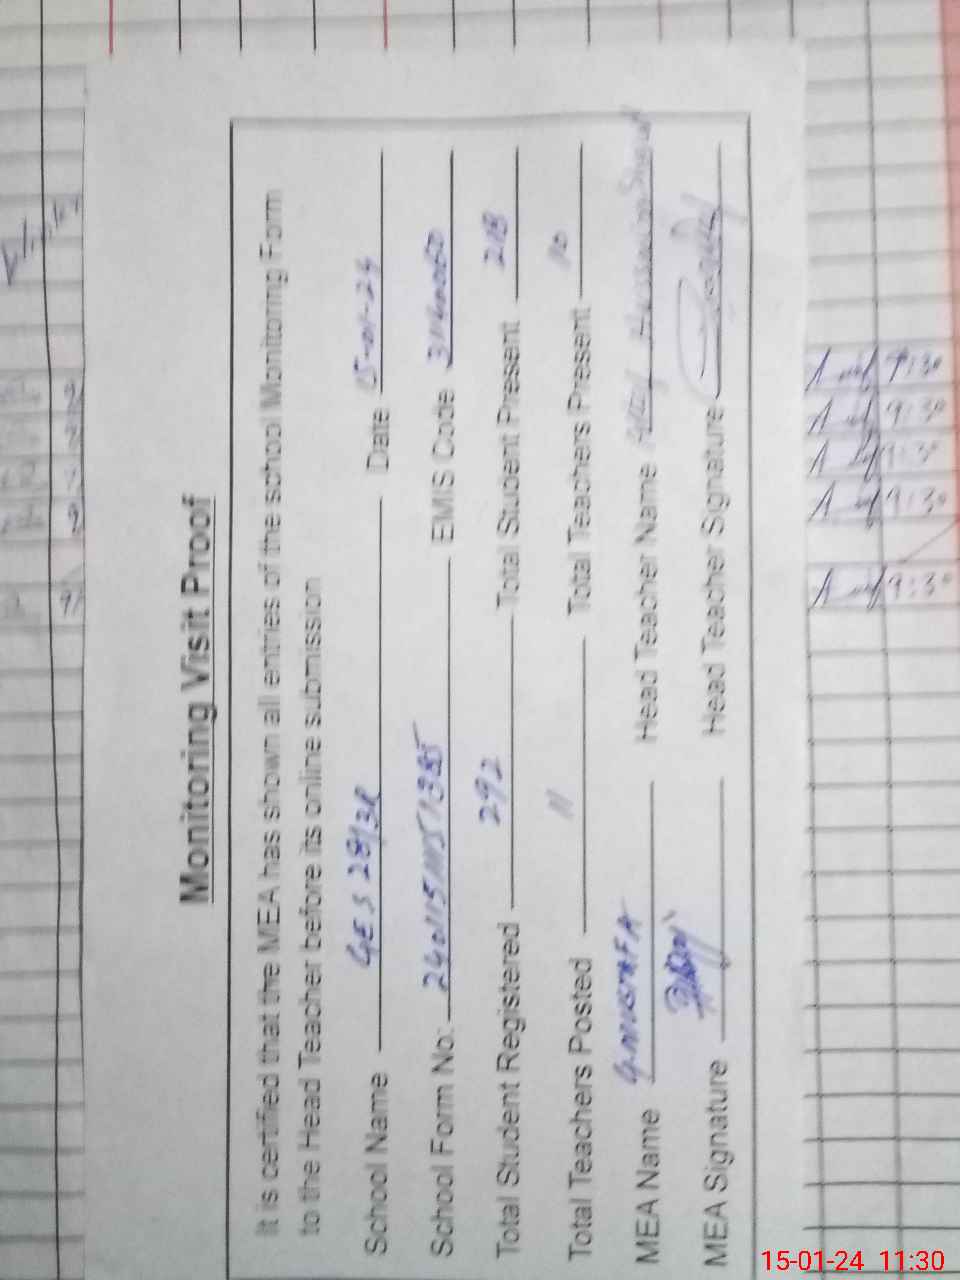 Monitoring Visit Proof
It is certified that the MEA has shown all entries of the school Monitoring Form
to the Head Teacher before its online submission
School Name GES 28/3R Date 15-01-24
School Form No: EMIS Code
Total Student Registered 292 Total Student Present 218
Total Teachers Posted 11 Total Teachers Present 10
MEA Name G.MUSTAFA Head Teacher Name
MEA Signature Head Teacher Signature
9:30
9:30
9:30
9:30
9:30
15-01-24 11:30